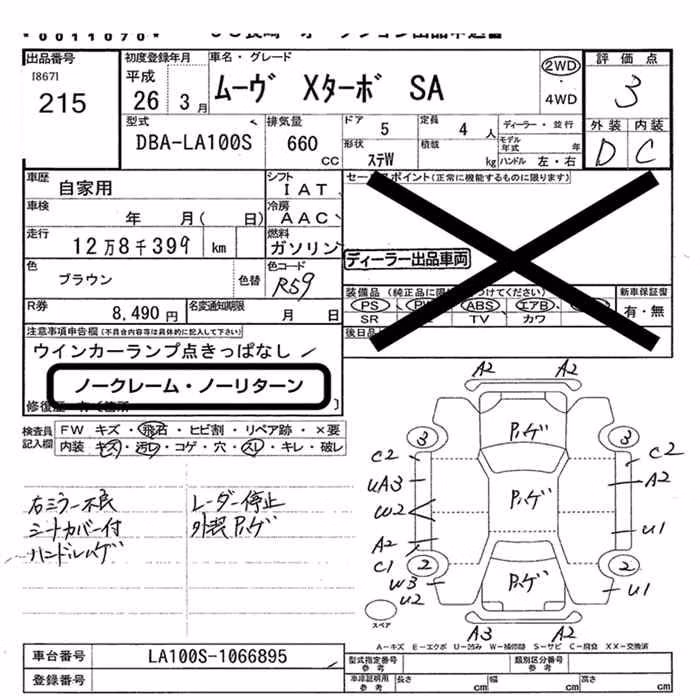 *0011070*
出品番号
[867]
215
初度登録年月
平成
26 3月
車名・グレード
ムーヴ Xターボ SA
2WD
・
4WD
評価点
3
外装 内装
D C
型式
DBA-LA100S
排気量
660
CC
ドア
5
定員
4 人
形状
ステW
積載
kg
ディーラー・並行
モデル年式 年
ハンドル 左・右
車歴
自家用
シフト
IAT
車検
年 月( 日)
冷房
AAC
走行
12万8千399 km
燃料
ガソリン
色
ブラウン
色替
色コード
R59
R券
8,490円
名変通知期限
月 日
セールスポイント(正常に機能するものに限ります)
ディーラー出品車両
装備品
PS ABS エアB
SR TV カワ
新車保証書
有・無
注意事項申告欄(不具合内容等は具体的に記入して下さい)
ウインカーランプ点きっぱなし
ノークレーム・ノーリターン
検査員記入欄
FW キズ・飛石・ヒビ割・リペア跡・×要
内装 キズ・汚レ・コゲ・穴・スレ・キレ・破レ
右ミラー不良
シートカバー付
ハンドルハゲ
レーダー停止
外装ハゲ
A2 A2
3 3
ハゲ
C2 C2
UA3 A2
W2
ハゲ
A2 U1
C1
2 2
W3 U1
U2
ハゲ
スペア
A3 A2
A-キズ E-エクボ U-凹み W-補修跡 S-サビ C-腐食 XX-交換済
車台番号
LA100S-1066895
登録番号
型式指定番号
参考
類別区分番号
参考
車庫証明用
参考
長さ cm
幅 cm
高さ cm